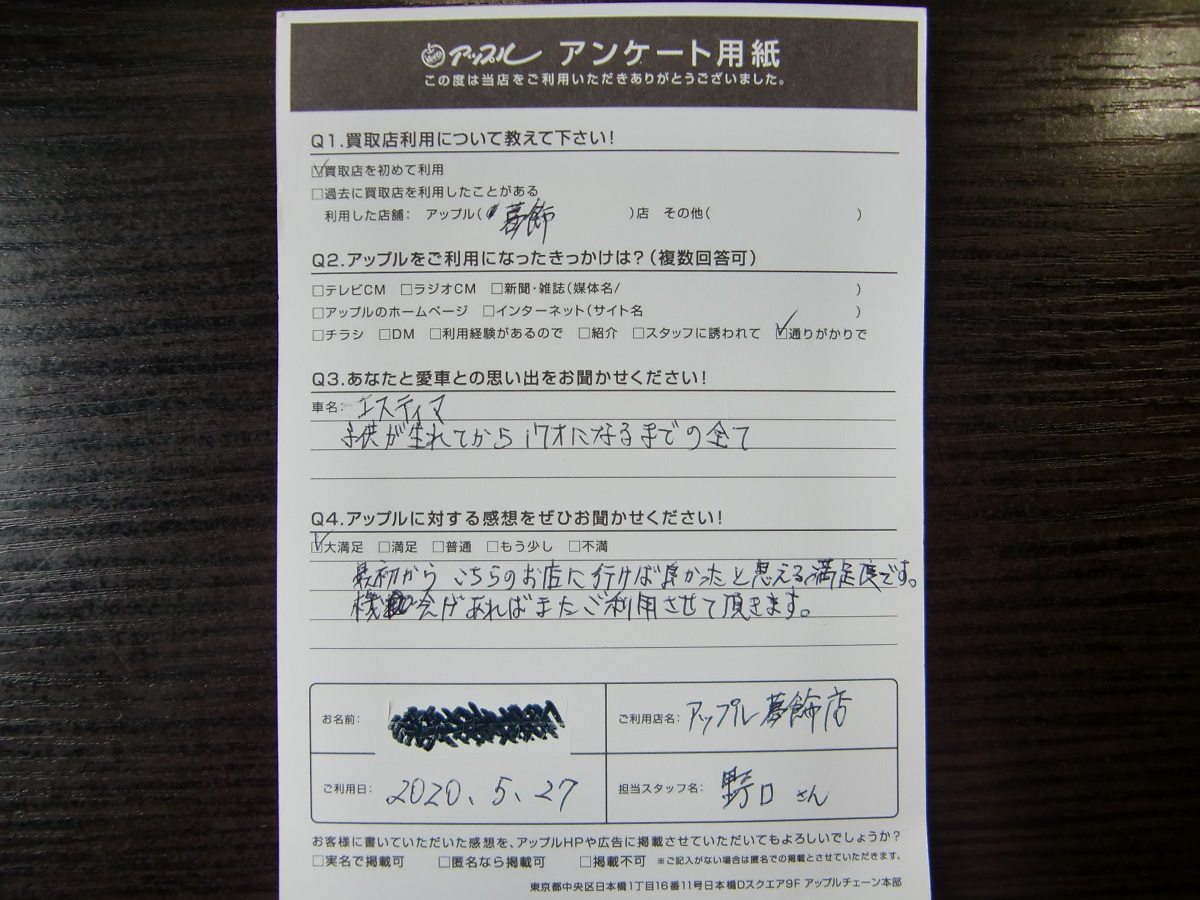 アップル アンケート用紙
この度は当店をご利用いただきありがとうございました。
Q1.買取店利用について教えて下さい!
☑買取店を初めて利用
□過去に買取店を利用したことがある
利用した店舗: アップル( 葛飾 )店 その他( )
Q2.アップルをご利用になったきっかけは?(複数回答可)
□テレビCM □ラジオCM □新聞・雑誌(媒体名/ )
□アップルのホームページ □インターネット(サイト名 )
□チラシ □DM □利用経験があるので □紹介 □スタッフに誘われて ☑通りがかりで
Q3.あなたと愛車との思い出をお聞かせください!
車名: エスティマ
子供が生れてから17才になるまでの全て
Q4.アップルに対する感想をぜひお聞かせください!
☑大満足 □満足 □普通 □もう少し □不満
最初からこちらのお店に行けば良かったと思える満足度です。
機会があればまたご利用させて頂きます。
お名前:
ご利用店名: アップル葛飾店
ご利用日: 2020.5.27
担当スタッフ名: 野口さん
お客様に書いていただいた感想を、アップルHPや広告に掲載させていただいてもよろしいでしょうか?
□実名で掲載可 □匿名なら掲載可 □掲載不可 ※ご記入がない場合は匿名での掲載とさせていただきます。
東京都中央区日本橋1丁目16番11号日本橋Dスクエア9F アップルチェーン本部